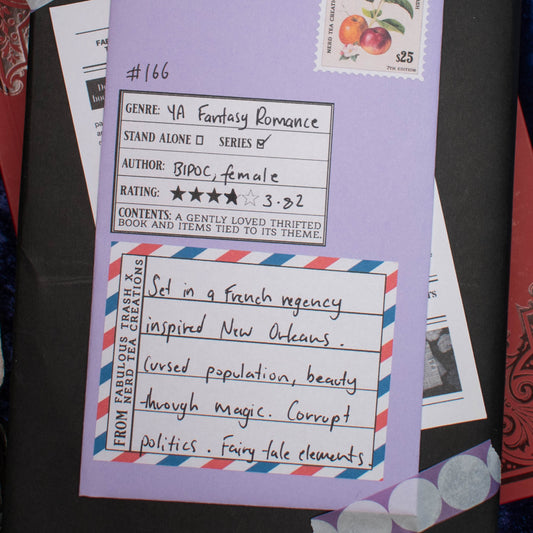 NERD TEA CREATIONS
$25
7TH EDITION
#166
GENRE: YA Fantasy Romance
STAND ALONE ☐ SERIES ☑
AUTHOR: BIPOC, female
RATING: ★★★★☆ 3.82
CONTENTS: A GENTLY LOVED THRIFTED
BOOK AND ITEMS TIED TO ITS THEME.
FROM FABULOUS TRASH X
NERD TEA CREATIONS
Set in a French regency
inspired New Orleans.
Cursed population, beauty
through magic. Corrupt
politics. Fairy tale elements.